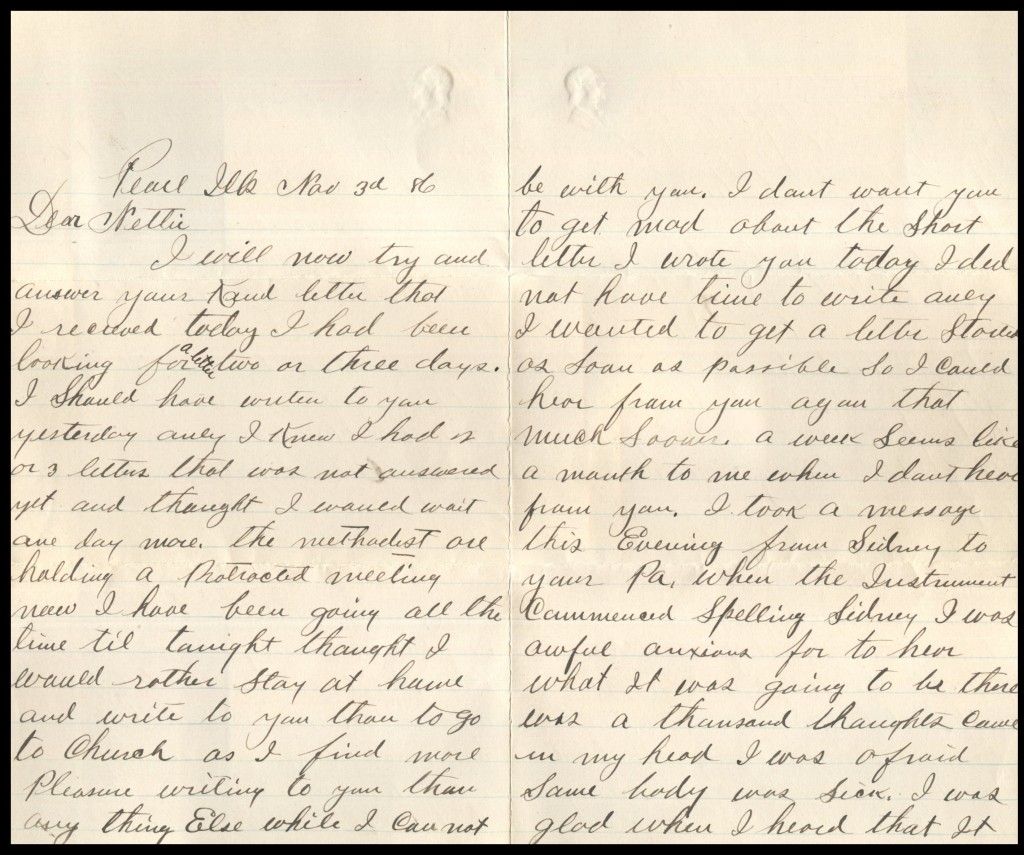 Pearl Ills Nov 3d 86
Dear Nettie
I will now try and
answer your Kand letter that
I recieved today I had been
looking for a letter two or three days.
I Should have writen to you
yesterday only I Knew I had 2
or 3 letters that was not answered
yet and thought I would wait
one day more. the methodist are
holding a Protracted meeting
now I have been going all the
time til tonight thought I
would rather Stay at home
and write to you than to go
to Church as I find more
Pleasure writing to you than
any thing Else while I Can not
be with you. I dont want you
to get mad about the Short
letter I wrote you today I did
not have time to write only
I wanted to get a letter Started
as Soon as possible So I Could
hear from you again that
much Sooner. a week Seems like
a month to me when I dont hear
from you. I took a message
this Evening from Sidney to
your Pa, when the Instrument
Commenced Spelling Sidney I was
awful anxious for to hear
what It was going to be there
was a thousand thoughts Came
in my head I was afraid
Some body was Sick. I was
glad when I heard that It